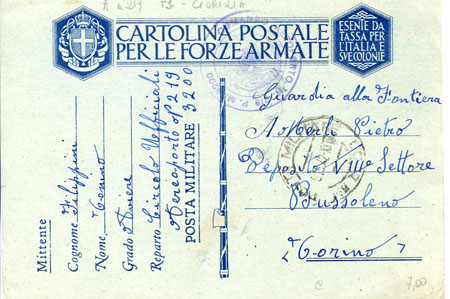 CARTOLINA POSTALE
PER LE FORZE ARMATE
ESENTE DA
TASSA PER
L'ITALIA E
SVE COLONIE
Mittente
Cognome Filippini
Nome
Grado
Reparto Circolo Ufficiali
Aereoporto nº 219
POSTA MILITARE 3200
Guardia alla Fontiera
Pietro
Deposito VIIIº Settore
Bussoleno
Torino
7,00